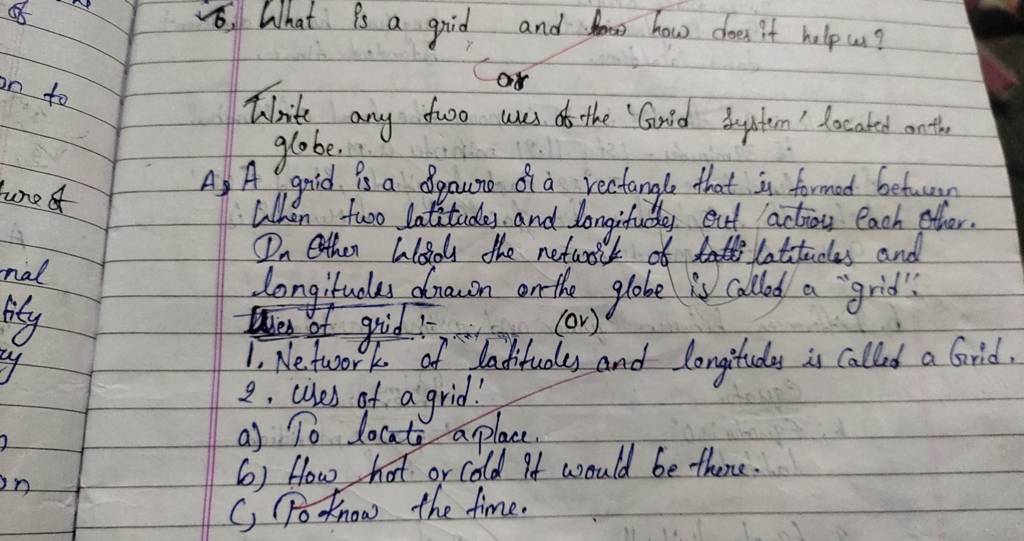 of
on to
ture of
nal
fity
ry
on
6, What is a grid, and how how does it help us?
or
Write any two uses of the 'Grid System' located on the
globe.
A, A grid is a Sqaure or a rectangle that is formed between
When two latitudes and longitudes cut across Each Other.
In Other Words the network of latti latitudes and
longitudes drawn on the globe is called a "grid".
Uses of grid :- (or)
1. Network of latitudes and longitudes is Called a Grid.
2. Uses of a grid:
a) To locate a place.
b) How hot or cold it would be there.
C, To know the time.